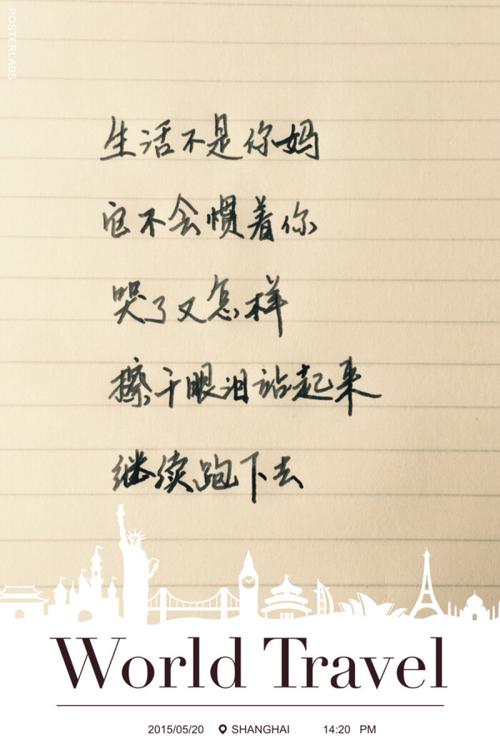 POSTERLABS
生活不是你妈
它不会惯着你
哭了又怎样
擦干眼泪站起来
继续跑下去
World Travel
2015/05/20 SHANGHAI 14:20 PM